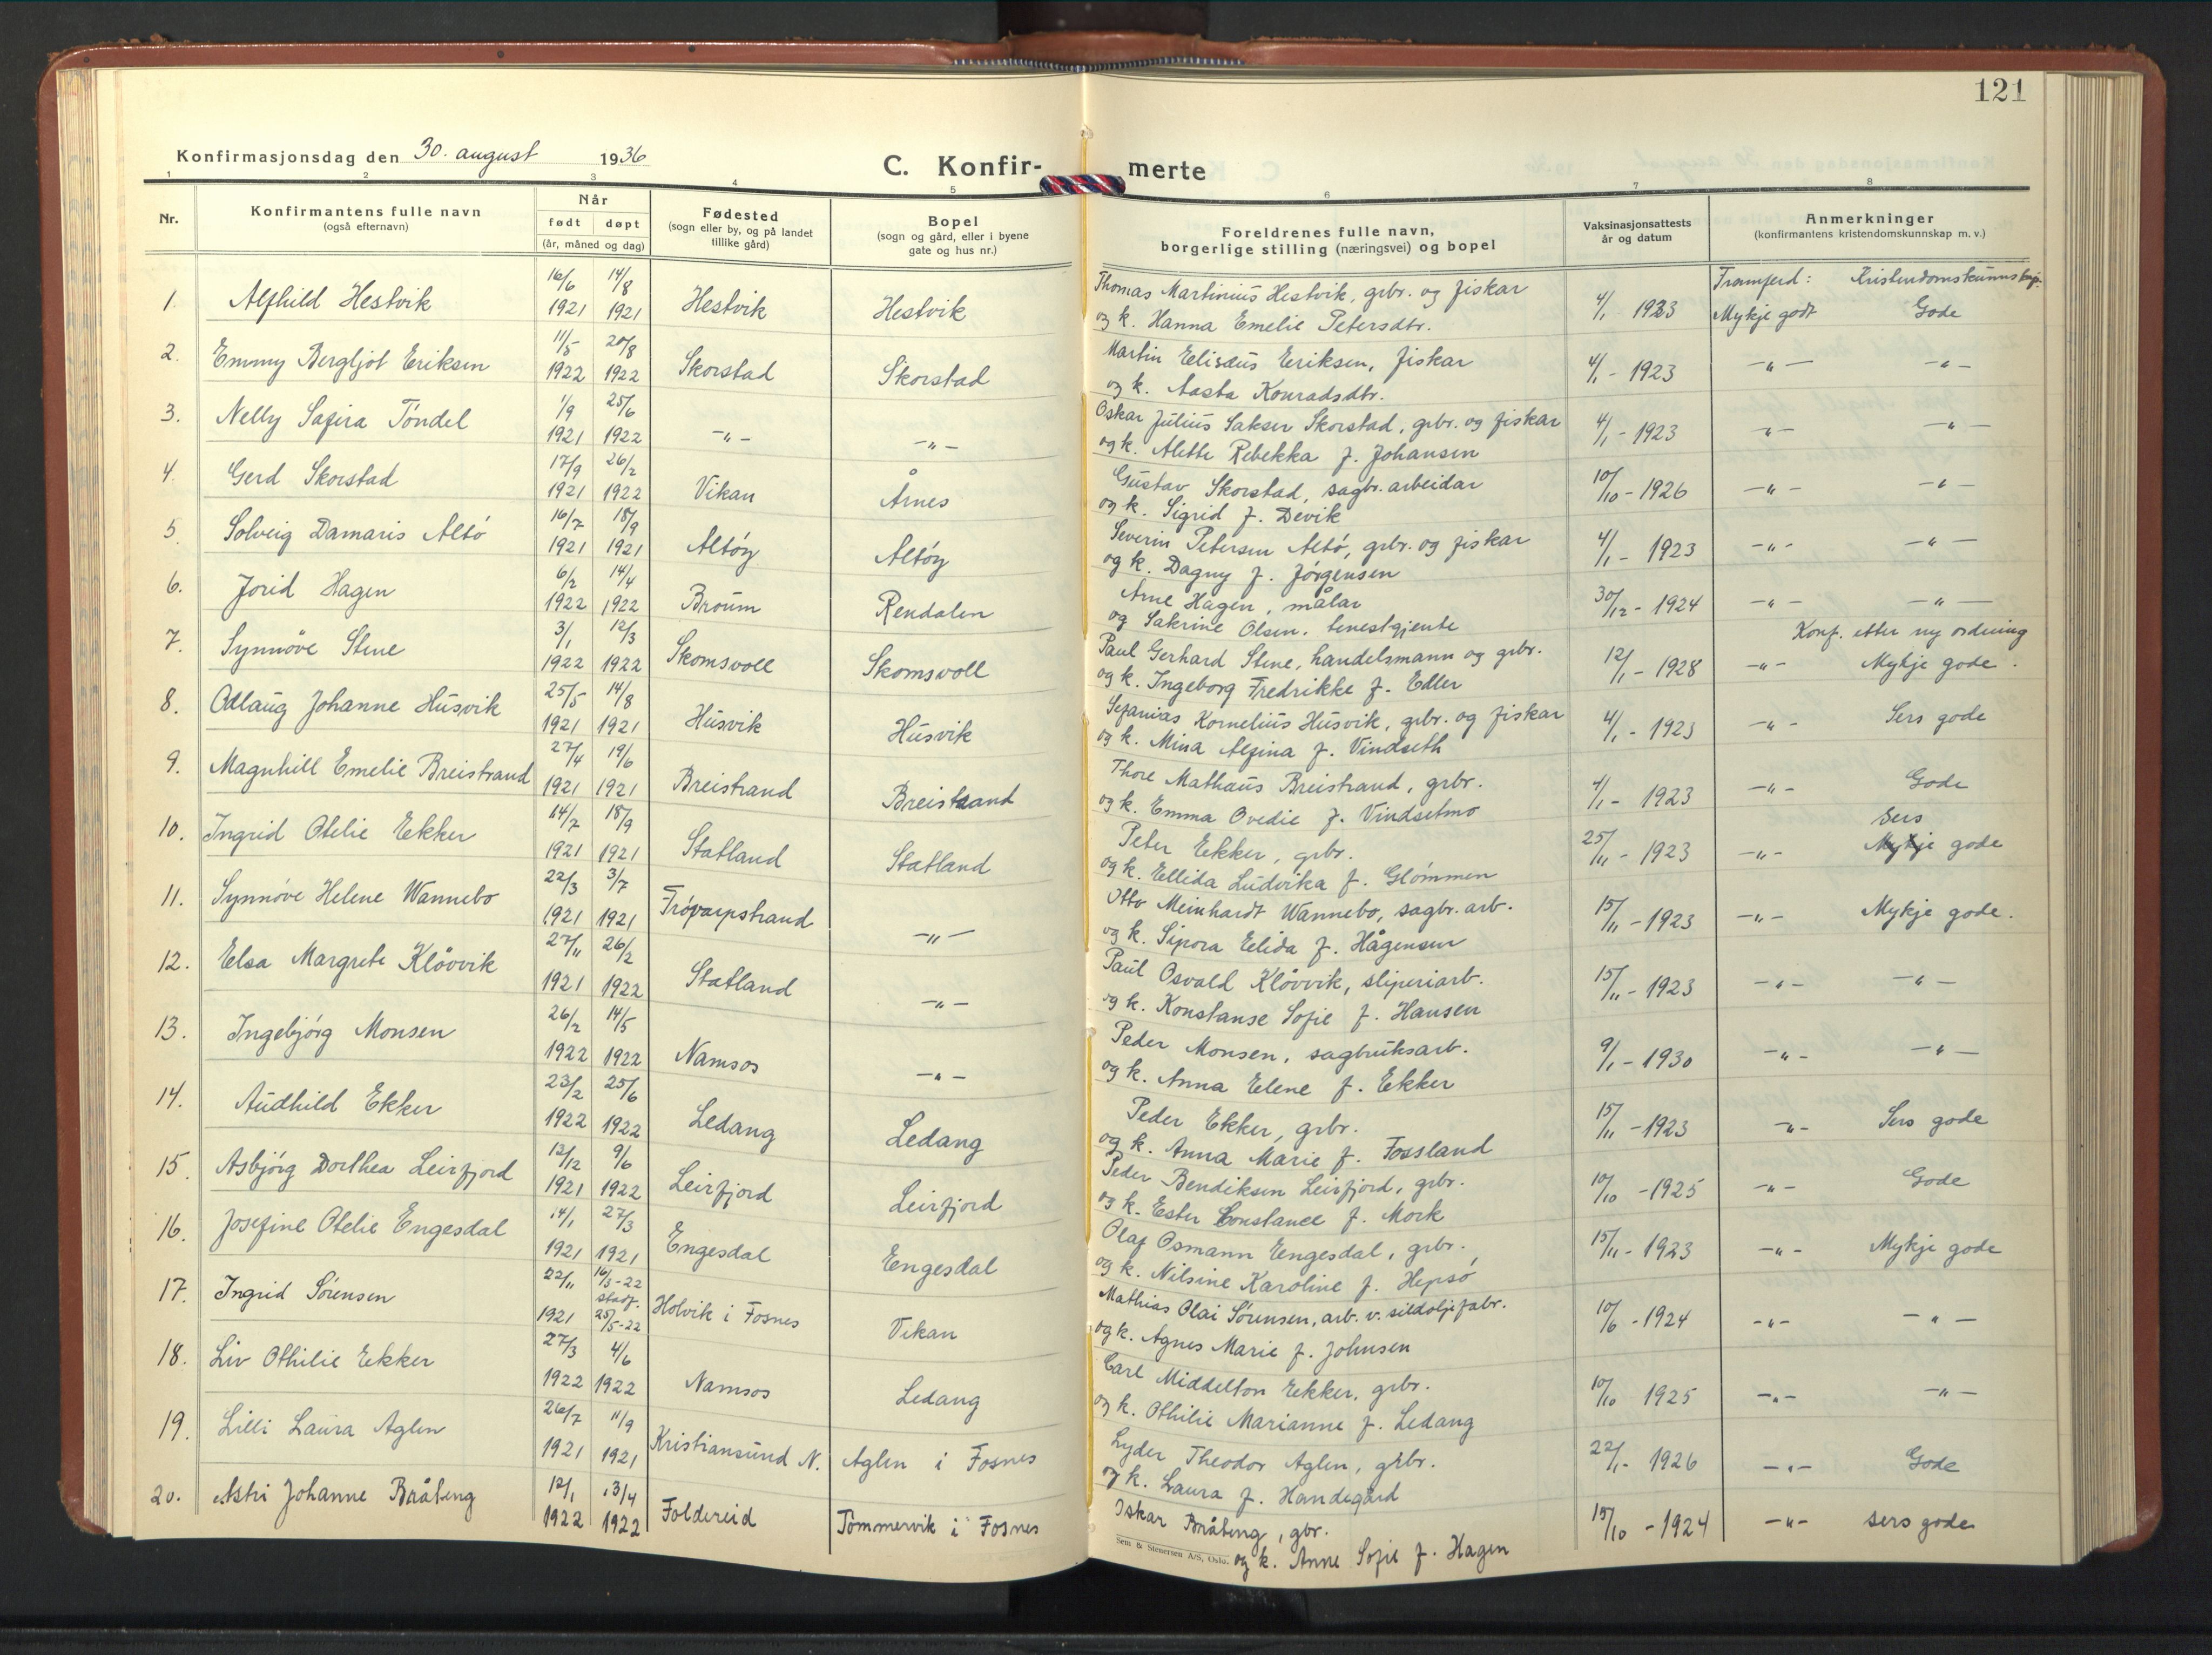 121
Konfirmasjonsdag den 30. august 1936
C. Konfir- merte
1 2 3 4 5 6 7 8
Nr. Konfirmantens fulle navn (også efternavn) Når født døpt (år, måned og dag) Fødested (sogn eller by, og på landet tillike gård) Bopel (sogn og gård, eller i byene gate og hus nr.) Foreldrenes fulle navn, borgerlige stilling (næringsvei) og bopel Vaksinasjonsattests år og datum Anmerkninger (konfirmantens kristendomskunnskap m. v.)
Framferd: Kristendomskunnskap.
1. Alfhild Hestvik 16/6 1921 14/8 1921 Hestvik Hestvik Thomas Martinius Hestvik, grbr. og fiskar 4/1 1923 Mykje godt Gode
og k. Hanna Emelie Petersdtr.
2. Emmy Bergljot Eriksen 11/5 1922 20/8 1922 Skorstad Skorstad Martin Elisæus Eriksen, fiskar 4/1 - 1923 -"- -"-
og k. Aasta Konradsdtr.
3. Nelly Safira Töndel 1/9 1921 25/6 1922 -"- -"- Oskar Julius Sakser Skorstad, grbr. og fiskar 4/1 - 1923 -"- -"-
og k. Alette Rebekka f. Johansen
4. Gerd Skorstad 17/9 1921 26/2 1922 Vikan Årnes Gustav Skorstad, sagbr. arbeidar 10/10 - 1926 -"- -"-
og k. Sigrid f. Devik
5. Solveig Damaris Altö 16/7 1921 18/9 1921 Altöy Altöy Severin Petersen Altö, grbr. og fiskar 4/1 - 1923 -"- -"-
og k. Dagny f. Jörgensen
6. Jorid Hagen 6/2 1922 14/4 1922 Broum Rendalen Arne Hagen, målar 30/12 - 1924 -"- -"-
og Sakrine Olsen, tenestgjente
Konf. etter ny ordning
7. Synnöve Stene 3/1 1922 12/3 1922 Skomsvoll Skomsvoll Paul Gerhard Stene, handelsmann og grbr. 12/1 - 1928 -"- Mykje gode.
og k. Ingeborg Fredrikke f. Edler
8. Odlaug Johanne Husvik 25/5 1921 14/8 1921 Husvik Husvik Sefanias Kornelius Husvik, grbr. og fiskar 4/1 - 1923 -"- Sers gode
og k. Mina Alfina f. Vindseth
9. Magnhill Emelie Breistrand 27/4 1921 19/6 1921 Breistrand Breistrand Thore Mathæus Breistrand, grbr. 4/1 - 1923 -"- Gode
og k. Emma Ovedie f. Vindsetmo
Sers
10. Ingrid Otelie Ekker 14/7 1921 18/9 1921 Statland Statland Peter Ekker, grbr. 25/11 - 1923 -"- Mykje gode
og k. Ellida Ludvika f. Glömmen
11. Synnöve Helene Wannebo 22/3 1921 3/7 1921 Frövarpstrand -"- Otto Meinhardt Wannebo, sagbr. arb. 15/11 - 1923 -"- Mykje gode.
og k. Sipora Elida f. Hågensen
12. Elsa Margrete Klövvik 27/11 1921 26/2 1922 Statland -"- Paul Osvald Klövvik, sliperiarb. 15/11 - 1923 -"- -"-
og k. Konstanse Sofie f. Hansen
13. Ingebjörg Monsen 26/2 1922 14/5 1922 Namsos -"- Peder Monsen, sagbruksarb. 9/1 - 1930 -"- -"-
og k. Anna Elene f. Ekker
14. Audhild Ekker 23/2 1922 25/6 1922 Ledang Ledang Peder Ekker, grbr. 15/11 - 1923 -"- Sers gode
og k. Anna Marie f. Fossland
15. Asbjörg Dorthea Leirfjord 12/12 1921 9/6 1922 Leirfjord Leirfjord Peder Bendiksen Leirfjord, grbr. 10/10 - 1925 -"- Gode
og k. Ester Constance f. Mork
16. Josefine Otelie Engesdal 14/1 1921 27/3 1921 Engesdal Engesdal Olaf Osmann Engesdal, grbr. 15/11 - 1923 -"- Mykje gode
og k. Nilsine Karoline f. Hepsö
17. Ingrid Sörensen 22/11 1921 16/3-22 stadf. 25/5-22 Holvik i Fosnes Vikan Mathias Olai Sörensen, arb. v. sildoljefabr. 10/6 - 1924 -"- -"-
og k. Agnes Marie f. Johnsen
18. Liv Othilie Ekker 27/3 1922 4/6 1922 Namsos Ledang Carl Middelton Ekker, grbr. 10/10 1925 -"- -"-
og k. Othilie Marianne f. Ledang
19. Lilli Laura Aglen 26/7 1921 11/9 1921 Kristiansund N. Aglen i Fosnes Lyder Theodor Aglen, grbr. 22/1 - 1926 -"- Gode
og k. Laura f. Handegård
20. Astri Johanne Bråteng 12/1 1922 13/4 1922 Foldereid Tommervik i Fosnes Oskar Bråteng, gbr. 15/10 - 1924 -"- sers gode
Sem & Stenersen A/S, Oslo. og k. Anne Sofie f. Hagen